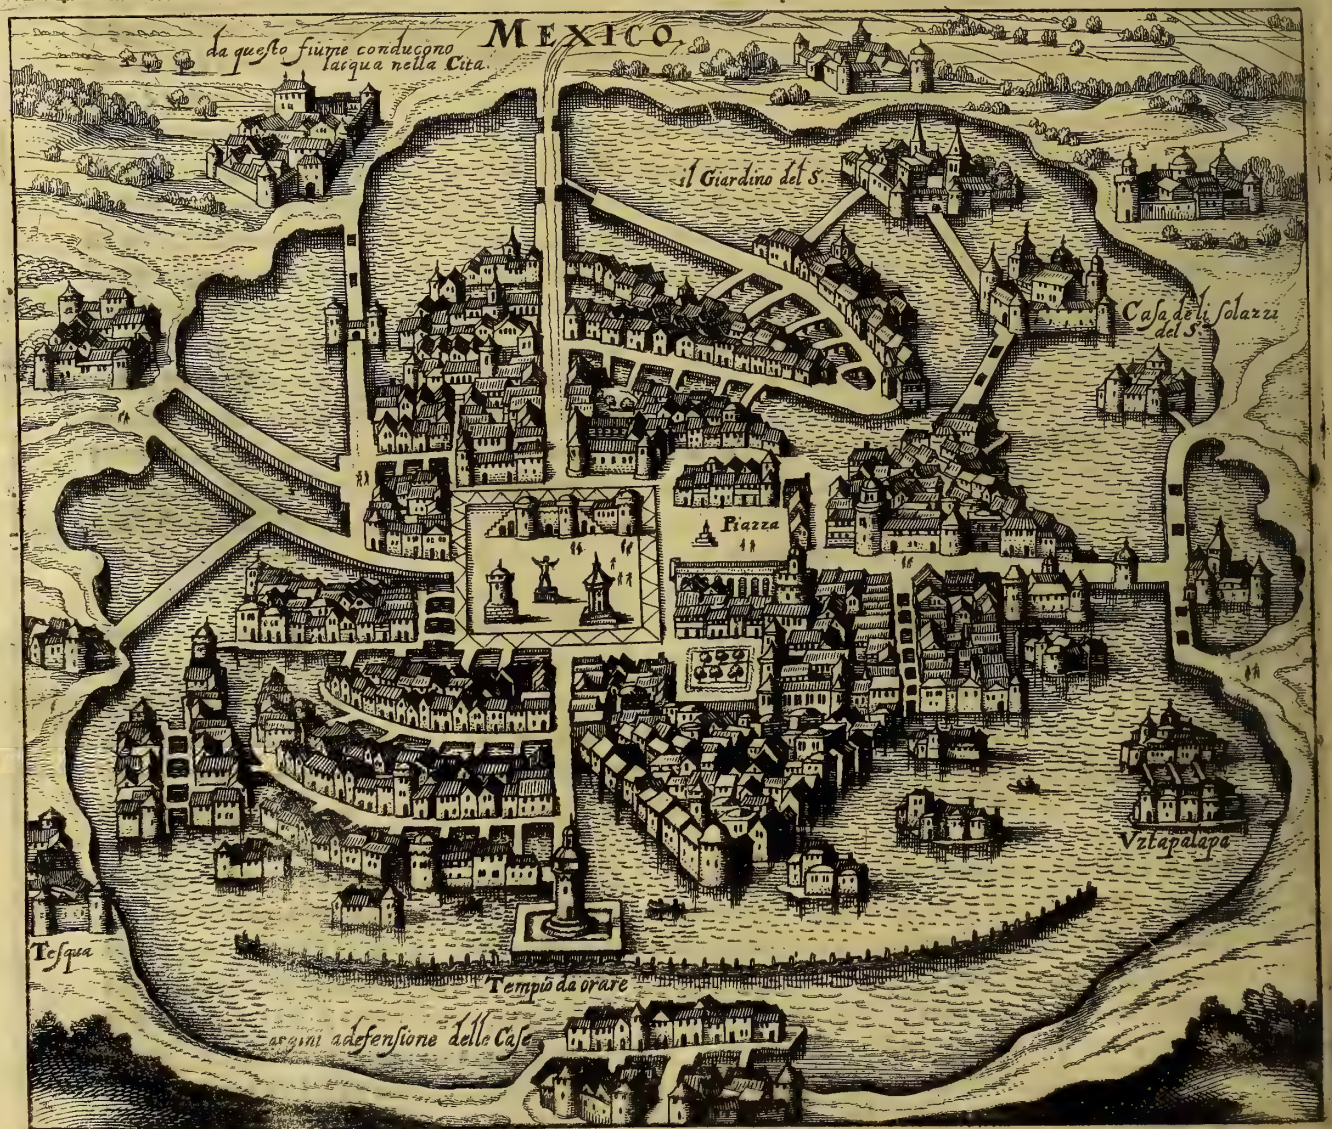 MEXICO
da questo fiume conducono
lacqua nella Cita
il Giardino del S.
Casa de li solazzi
del S.
Piazza
Vztapalapa
Tesqua
Tempio da orare
argini a defensione delle Case